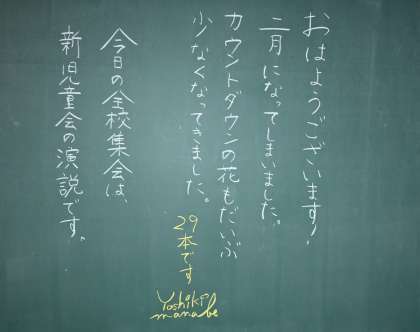 おはようございます！
二月になってしまいました。
カウントダウンの花もだいぶ
少なくなってきました。
29
本です
Yoshiki
manabe
今日の全校集会は、
新児童会の演説です。